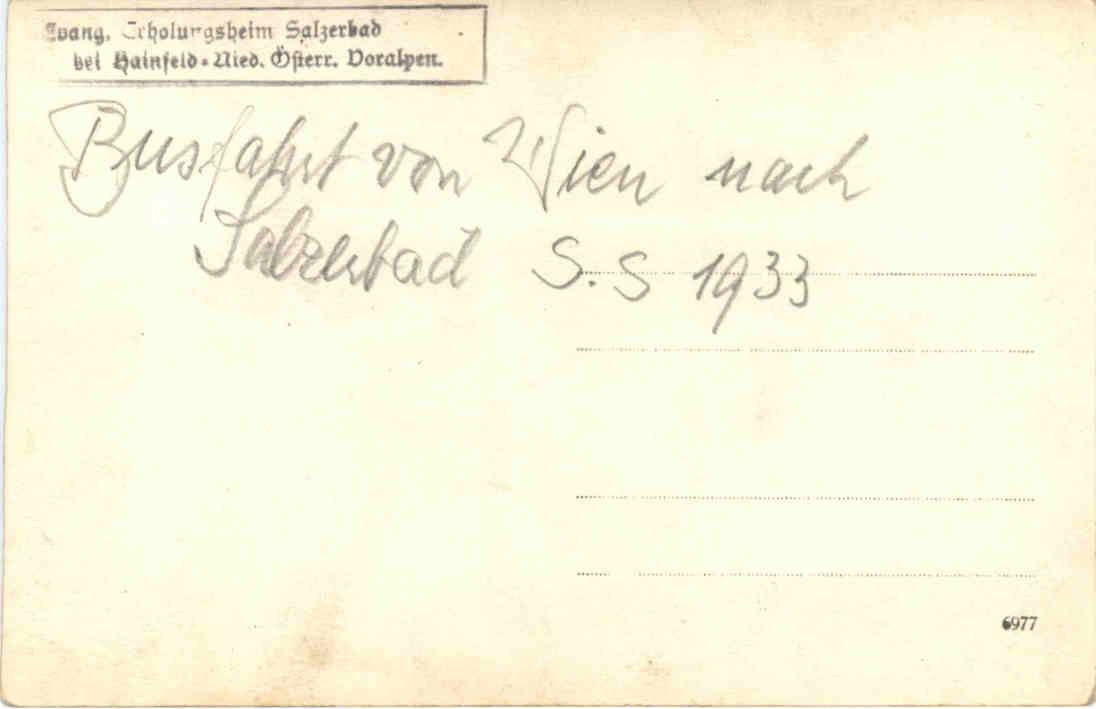 Evang. Erholungsheim Salzerbad
bei Hainfeld-Nied. Österr. Voralpen.
Busfahrt von Wien nach
Salzerbad S.S 1933
6977